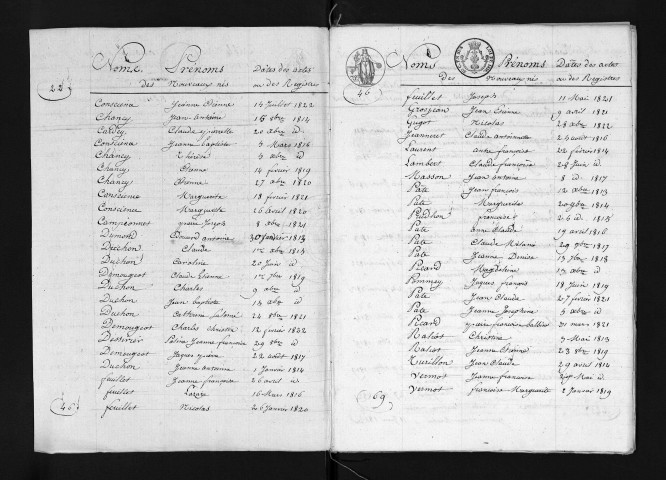 Noms Prénoms Dates des actes
des Nouveaux nés ou des Registres
22
Conscience Jeanne Etienne 14 Juillet 1822
Chancy Jean Antoine 16 8bre 1814
Cardey Claude 20 abre id
Conscience Jeanne baptiste 3 Mars 1816
Chancy Thérèse 4 abre id
Chancy Etienne 14 fevrier 1819
Chancy Etienne 27 abre 1820
Conscience Marguerite 18 fevrier 1821
Conscience Marguerite 26 avril 1820
Campionnet Joseph 8 abre 1821
Dumond Edouard antoine 30 Janvier 1813
Duchon Claude 1er abre 1813
Duchon Caroline 20 Juin id
Demougeot Claude Etienne 1er 7bre 1819
Duchon Charles 9 abre id
Duchon Jean baptiste 14 abre id
Duchon Catherine 24 8bre 1821
Demougeot Charles 12 fevrier 1822
Jeanne françoise 29 8bre id
Demougeot Jaques 22 août 1817
Duchon Jeanne antoine 1 Janvier 1814
feuillet Jeanne françoise 26 avril id
feuillet Lazare 16 Mars 1816
feuillet Nicolas 26 Janvier 1820
46
Noms Prénoms Dates des actes
des Nouveaux nés ou des Registres
46
feuillet Joseph 11 Mai 1821
Grosjean Jean Etienne 9 avril 1821
Guyot Nicolas 28 abre 1822
Jeanneret Claude Antoinette 24 août 1816
Laurent anne françoise 22 fevrier 1814
Lambert Claude françoise 28 Juin id
Masson Jean antoine 8 id 1817
Pate Jean françois 12 abre 1813
Pate Marguerite 20 9bre 1814
françoise 26 id 1815
Pate anne Claude 19 avril 1816
Pate Claude 29 7bre 1817
Pate Jeanne Denise 13 7bre 1818
Picard Magdeleine 13 abre id
Pommey Jaques françois 18 Juin 1819
Pate Jean Claude 27 fevrier 1821
Pate Jeanne Josephine 5 abre id
Picard françois 31 mars 1821
Christine 5 Mai 1813
Jeanne Etienne 23 8bre 1819
Jean Claude 29 avril 1814
Vermot Jeanne françoise Mai id
Vermot françoise Marguerite 2 Janvier 1819
69